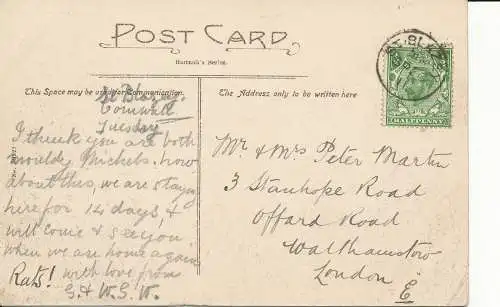 POST CARD
Hartmann's Series.
This Space may be used for Communication.
The Address only to be written here
HALFPENNY
St Blazey.
Cornwall
Tuesday
I think you are both
mouldy Michels. how
about this, we are staying
here for 14 days &
will come & see you
when we are home again
Rats! with love from
G. & W. G. W.
Mr & Mrs Peter Martin
3 Stanhope Road
Offard Road
Walthamstow
London E